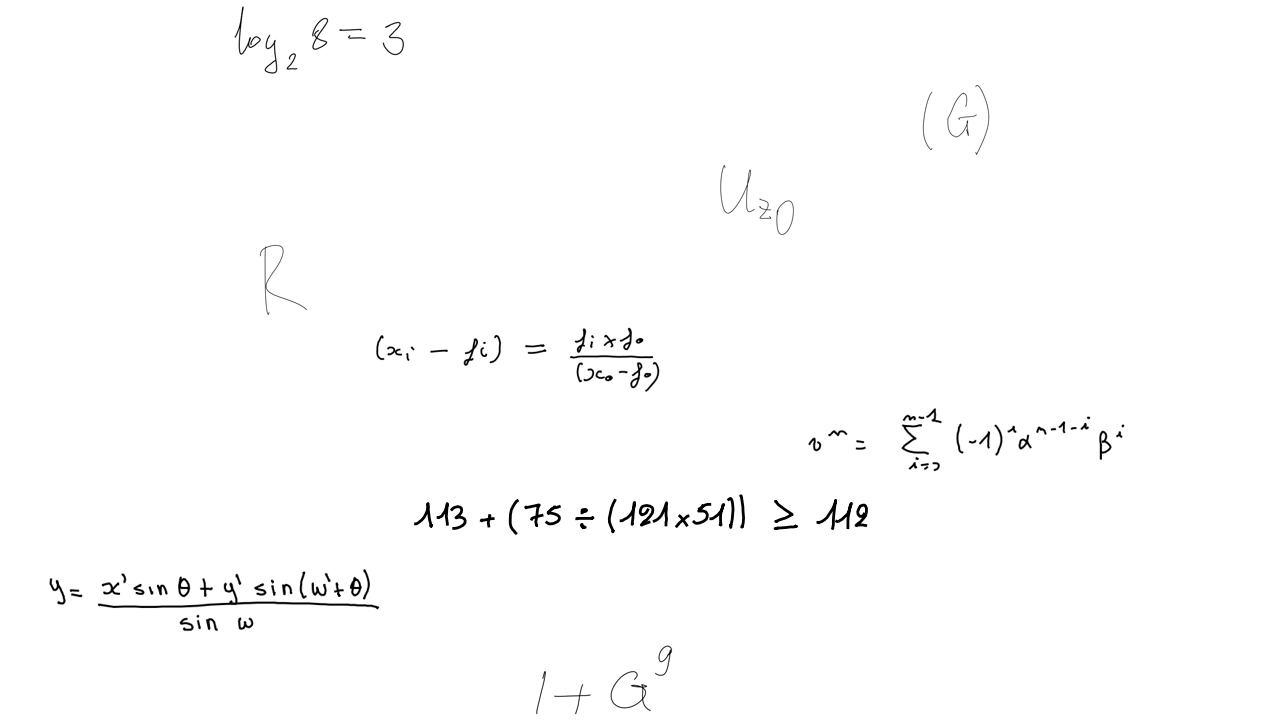 log₂ 8 = 3
(G)
U_{z0}
R
(x_i - f_i) = \frac{f_i × f_0}{(x_0 - f_0)}
v^n = \sum_{i=0}^{n-1} (-1)^i α^{n-1-i} β^i
113 + (75 ÷ (121 × 51)) ≥ 112
y = \frac{x' sin θ + y' sin(ω' + θ)}{sin ω}
1 + G^g